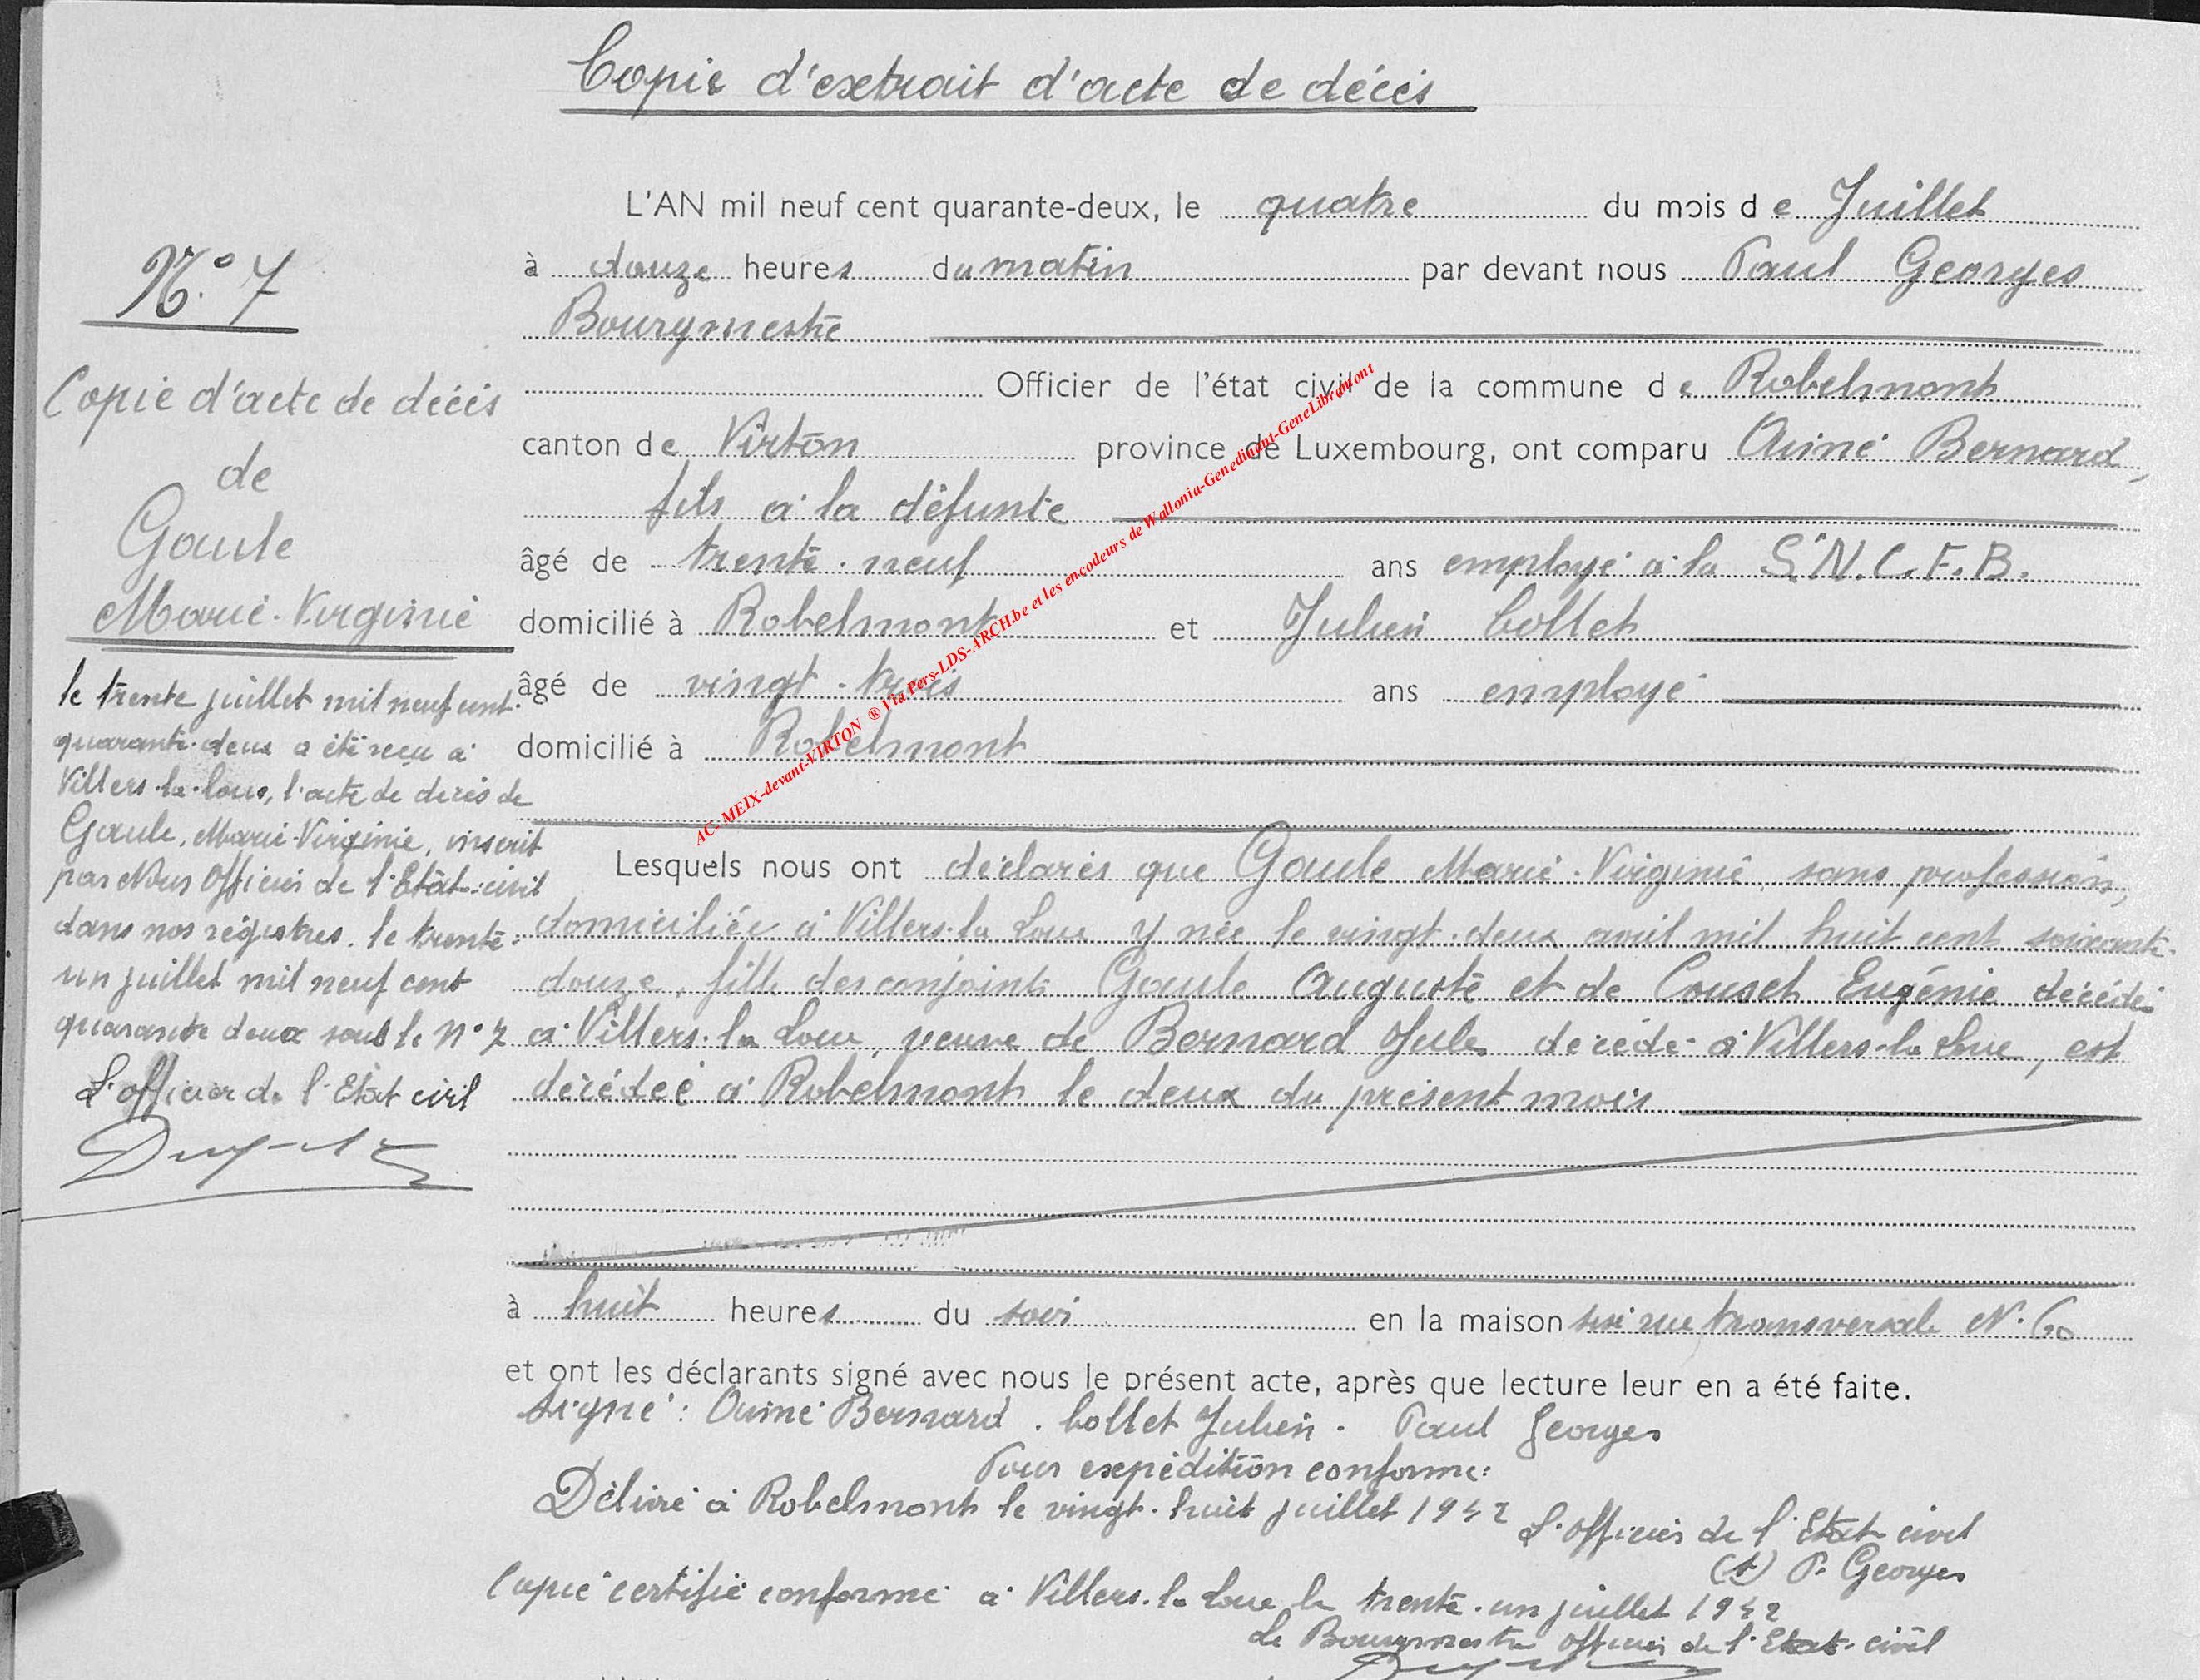 Copie d'extrait d'acte de décès
L'AN mil neuf cent quarante-deux, le quatre du mois de Juillet
à douze heures du matin par devant nous Paul Georges
Bourgmestre
Officier de l'état civil de la commune de Robelmont
canton de Virton province de Luxembourg, ont comparu Aimé Bernard,
fils à la défunte
âgé de trente-neuf ans employé à la S.N.C.F.B.
domicilié à Robelmont et Julien Collet
âgé de vingt-trois ans employé
domicilié à Robelmont
N° 7
Copie d'acte de décès
de
Goule
Marie-Virginie
le trente juillet mil neuf cent
quarante-deux a été reçu à
Villers-la-Loue, l'acte de décès de
Goule, Marie-Virginie, inscrit
par Nous Officier de l'Etat-civil
dans nos régistres. le trente-
un juillet mil neuf cent
quarante deux sous le N° 7
L'officier de l'Etat civil
Lesquels nous ont déclarés que Goule Marie-Virginie, sans profession,
domiciliée à Villers-la-Loue y née le vingt-deux avril mil huit cent soixante-
douze, fille des conjoints Goule Auguste et de Couset Eugénie décédés
à Villers-la-Loue, veuve de Bernard Jules décédé à Villers-la-Loue, est
décédée à Robelmont le deux du présent mois
à huit heures du soir en la maison sise rue transversale N. 60
et ont les déclarants signé avec nous le présent acte, après que lecture leur en a été faite.
Signé: Aimé Bernard. Collet Julien. Paul Georges
Pour expédition conforme:
Délivré à Robelmont le vingt-huit juillet 1942
L'officier de l'Etat civil
(s) P. Georges
Copie certifié conforme à Villers-la-Loue le trente-un juillet 1942
Le Bourgmestre officier de l'Etat-civil
AC- MEIX-devant-VIRTON ® Via Pers-LDS-ARCH.be et les encodeurs de Wallonia-Genedinant-GeneLibramont